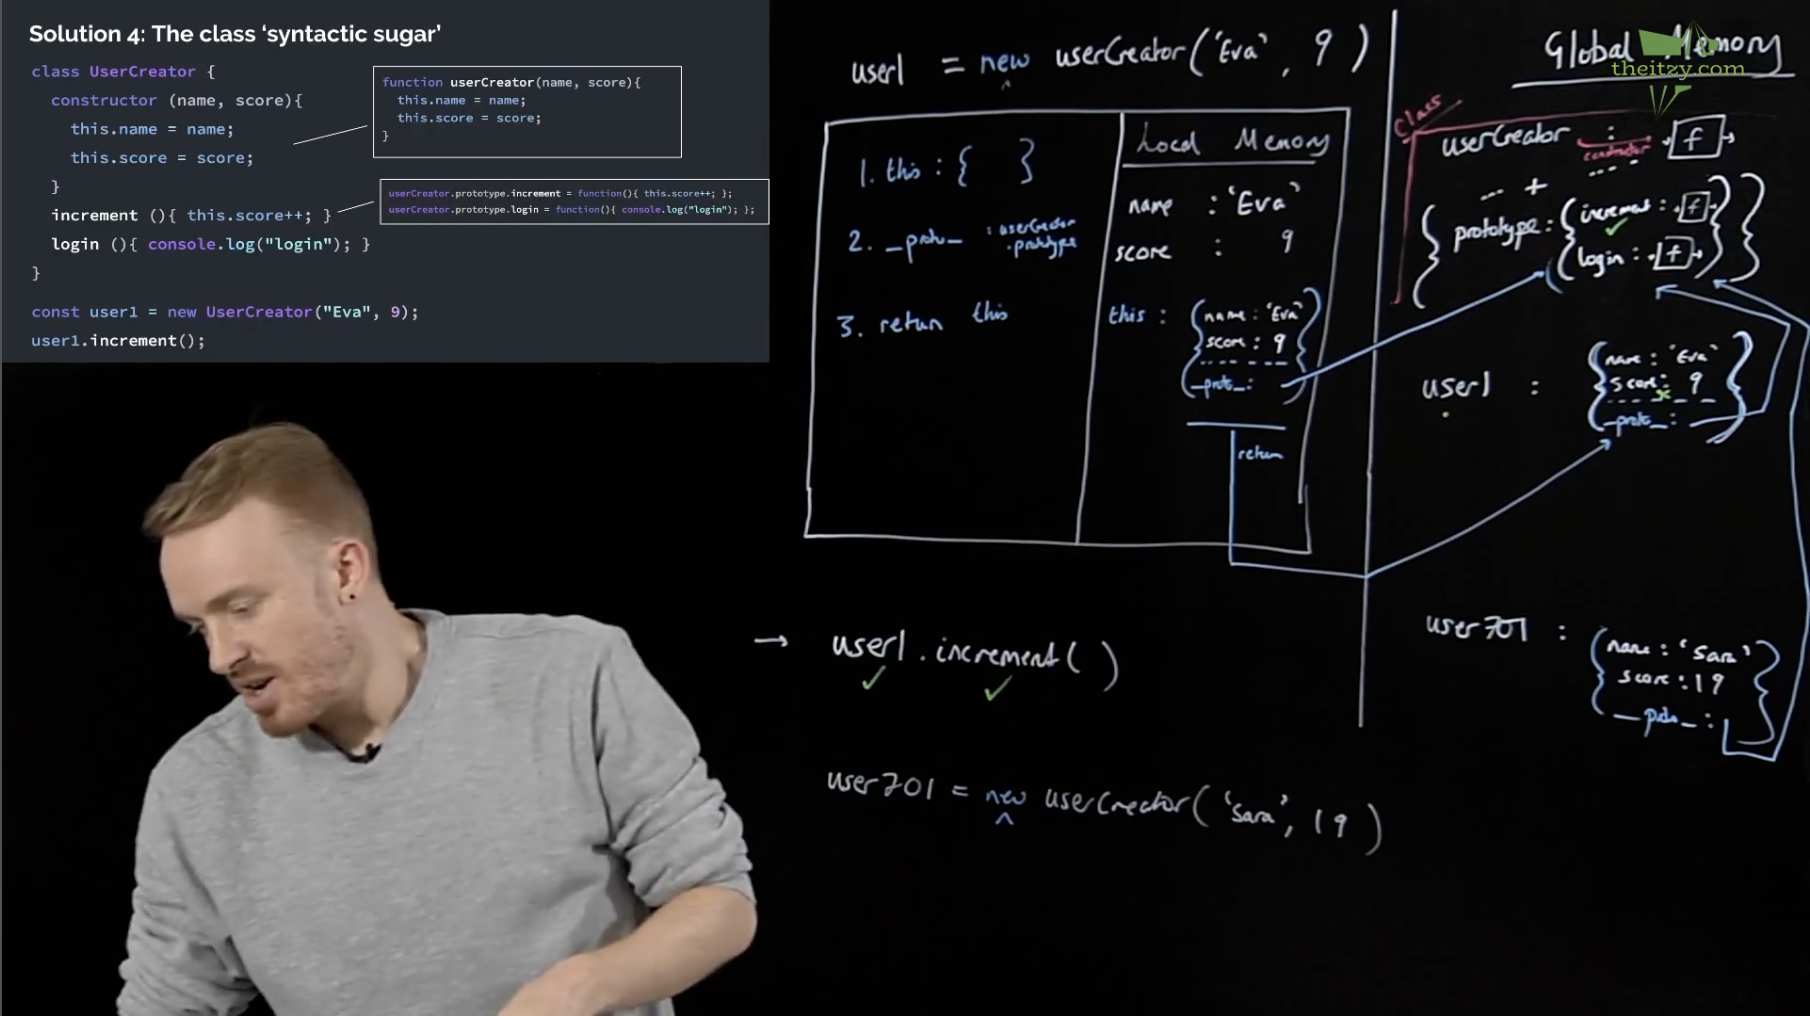 Solution 4: The class ‘syntactic sugar’
class UserCreator {
constructor (name, score){
this.name = name;
this.score = score;
}
increment (){ this.score++; }
login (){ console.log("login"); }
}
const user1 = new UserCreator("Eva", 9);
user1.increment();
function userCreator(name, score){
this.name = name;
this.score = score;
}
userCreator.prototype.increment = function(){ this.score++; };
userCreator.prototype.login = function(){ console.log("login"); };
user1 = new userCreator('Eva', 9)
^
1. this : { }
2. __proto__ : userCreator
.prototype
3. return this
Local Memory
name : 'Eva'
score : 9
this : { name : 'Eva'
score : 9
__proto__ : }
return
Global Memory
theitzy.com
Class
userCreator : f
constructor
+
{ prototype : { increment : f
login : f } }
user1 : { name : 'Eva'
score : 9
__proto__ : }
user701 : { name : 'Sara'
score : 19
__proto__ : }
→ user1.increment( )
✓ ✓
user701 = new userCreator('Sara', 19)
^